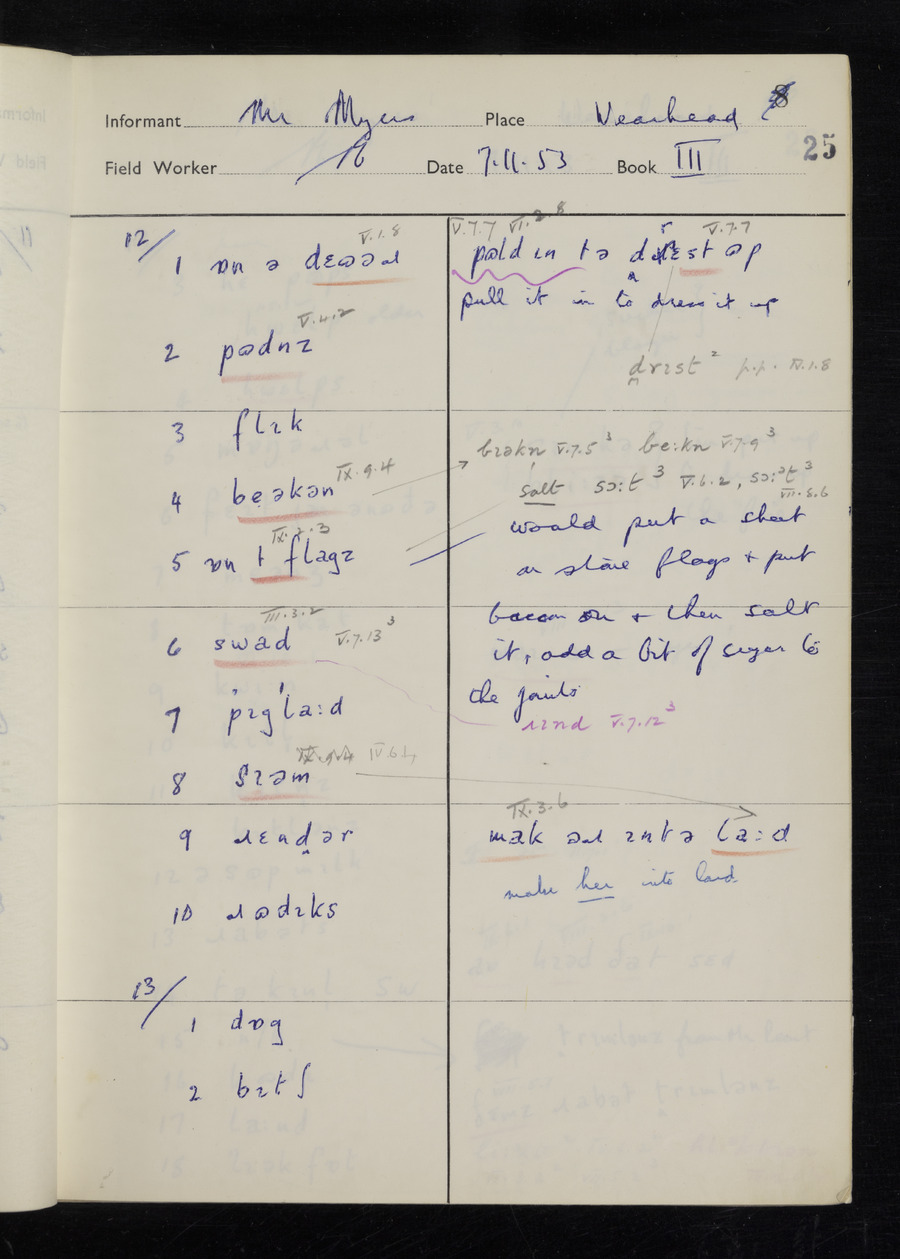 8
Informant Mr Myers Place Wearhead
25
Field Worker Date 7.11.53 Book III
12/
V.1.8
1 ɒn ə
V.7.7 VI.2.8 V.7.7
in tə
pull it in to dress it up
V.4.2
2 pɷdnɪ
drɪst ² p.p. IV.1.8
3 flɪk
brɛkn̩ V.7.5³ be:kn V.7.9³
IX.9.4
4 beəkən
salt sɔ:t ³ V.6.2, sɔ:ət ³
VII.5.6
5 ɒn t flagz
would put a sheet
on stone flags + put
bacon on + then salt
III.3.2
6 swad V.7.13³
it, add a bit of sugar to
the joints
7 pɪgla:d
ɹɪnd V.7.12³
IV.6.4
8 sɪəm
IX.3.6
9 ɹɛndər
mak əɹ ɪntə la:d
make her into lard
10 ɹɷdɪks
13/
1 dɒg
2 bɪtʃ